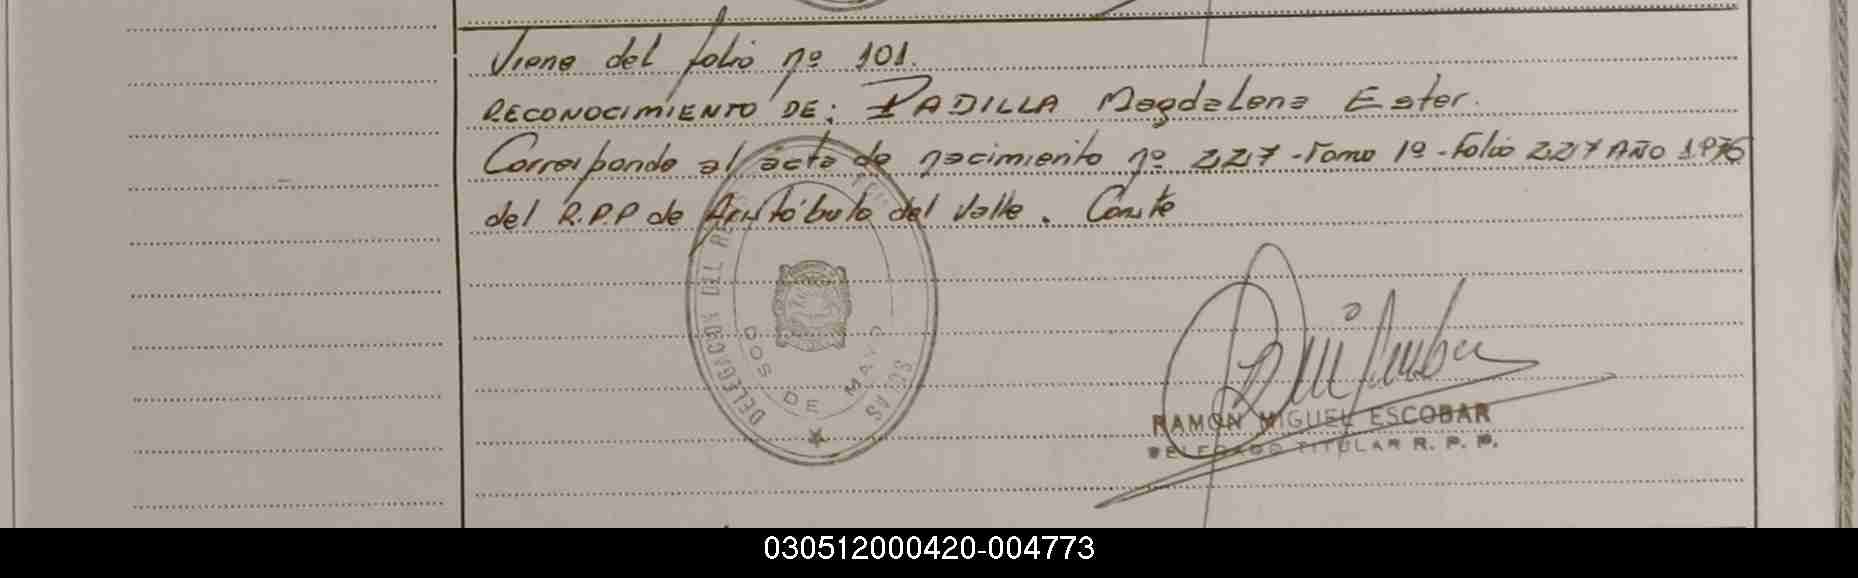 Viene del folio nº 101.
RECONOCIMIENTO DE: PADILLA Magdalena Ester.
Corresponde al acta de nacimiento nº 227 - Tomo 1º - Folio 227 AÑO 1976
del R.P.P de Aristóbulo del Valle. Conste
DELEGACION DEL REG
DOS DE MAYO
RAMON MIGUEL ESCOBAR
DELEGADO TITULAR R. P. P.
030512000420-004773